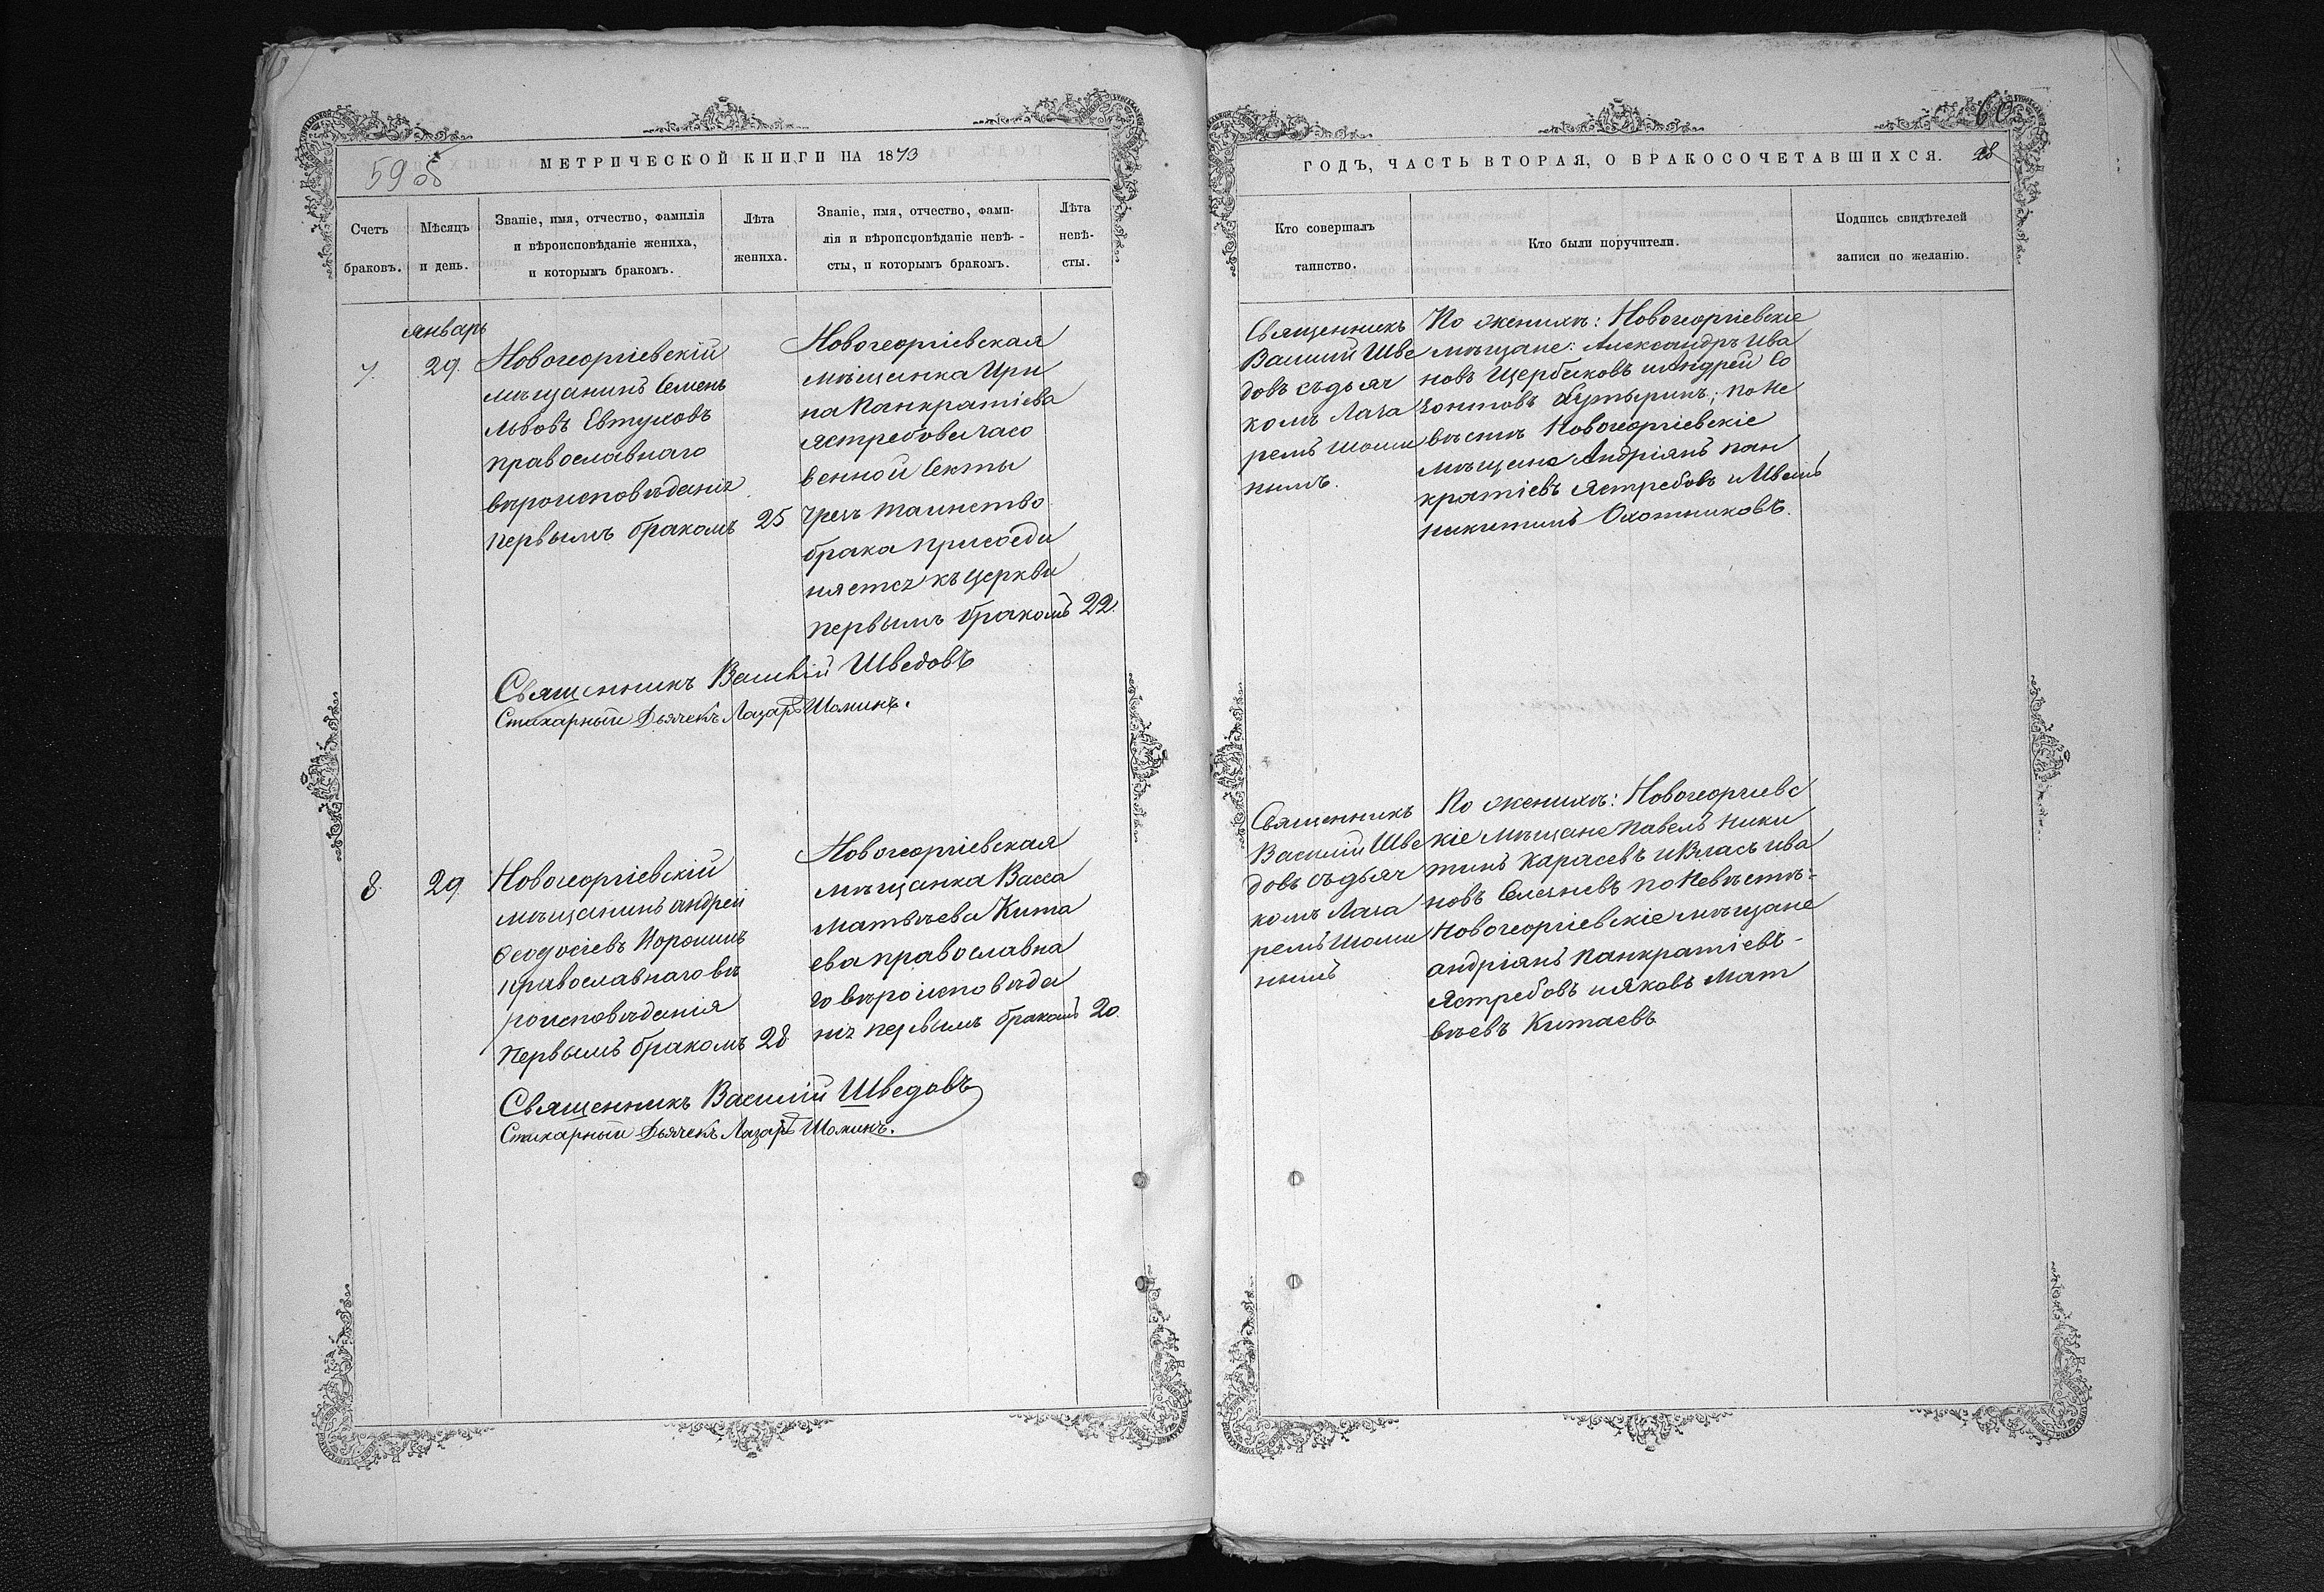 59 об
МЕТРИЧЕСКОЙ КНИГИ НА 1873
Счетъ браковъ.
Мѣсяцъ и день.
Званіе, имя, отчество, фамилія
и вѣроисповѣданіе жениха,
и которымъ бракомъ.
Лѣта
жениха.
Званіе, имя, отчество, фами-
лія и вѣроисповѣданіе невѣ-
сты, и которымъ бракомъ.
Лѣта
невѣ-
сты.
январь
7.
29.
Новогеоргіевскій
мѣщанинъ Семенъ
Львовъ Евтуховъ
православнаго
вѣроисповѣданія
первымъ бракомъ 25
Новогеоргіевская
мѣщанка Ири
на Панкратіева
Ястребова часо
венной Секты
чрезъ таинство
брака присоеди
няется къ церкви
первымъ бракомъ 22.
Священникъ Василій Шведовъ
Стихарный Дьячекъ Лазарь Шоминъ.
8.
29.
Новогеоргіевскій
мѣщанинъ андрей
Ѳеодосіевъ
православнаго вѣ
роисповѣданія
первымъ бракомъ 28
Новогеоргіевская
мѣщанка Васса
Матвѣева Кита
ева православна
го вѣроисповѣда
нія первымъ бракомъ 20.
Священникъ Василій Шведовъ
Стихарный Дьячекъ Лазарь Шоминъ.
60
ГОДЪ, ЧАСТЬ ВТОРАЯ, О БРАКОСОЧЕТАВШИХСЯ.
Кто совершалъ
таинство.
Кто были поручители.
Подпись свидѣтелей
записи по желанію.
Священникъ
Василій Шве
довъ съ дьяч
комъ Лаза
ремъ Шоми
нымъ.
По женихѣ: Новогеоргіевскіе
мѣщане: Александръ Ива
новъ Щербаковъ и Андрей Со
зонтовъ Бутыринъ; по Не
вѣстѣ Новогеоргіевскіе
мѣщане Андріянъ Пан
кратіевъ Ястребовъ и
никитинъ Охотниковъ.
Священникъ
Василій Шве
довъ съ дьяч
комъ Лаза
ремъ Шоми
нымъ
По женихѣ: Новогеоргіевс
кіе мѣщане Павелъ Ники
тинъ Карасевъ и Власъ ива
новъ по Невѣстѣ:
Новогеоргіевскіе мѣщане
андріянъ Панкратіевъ-
Ястребовъ и Яковъ Мат
вѣевъ Китаевъ